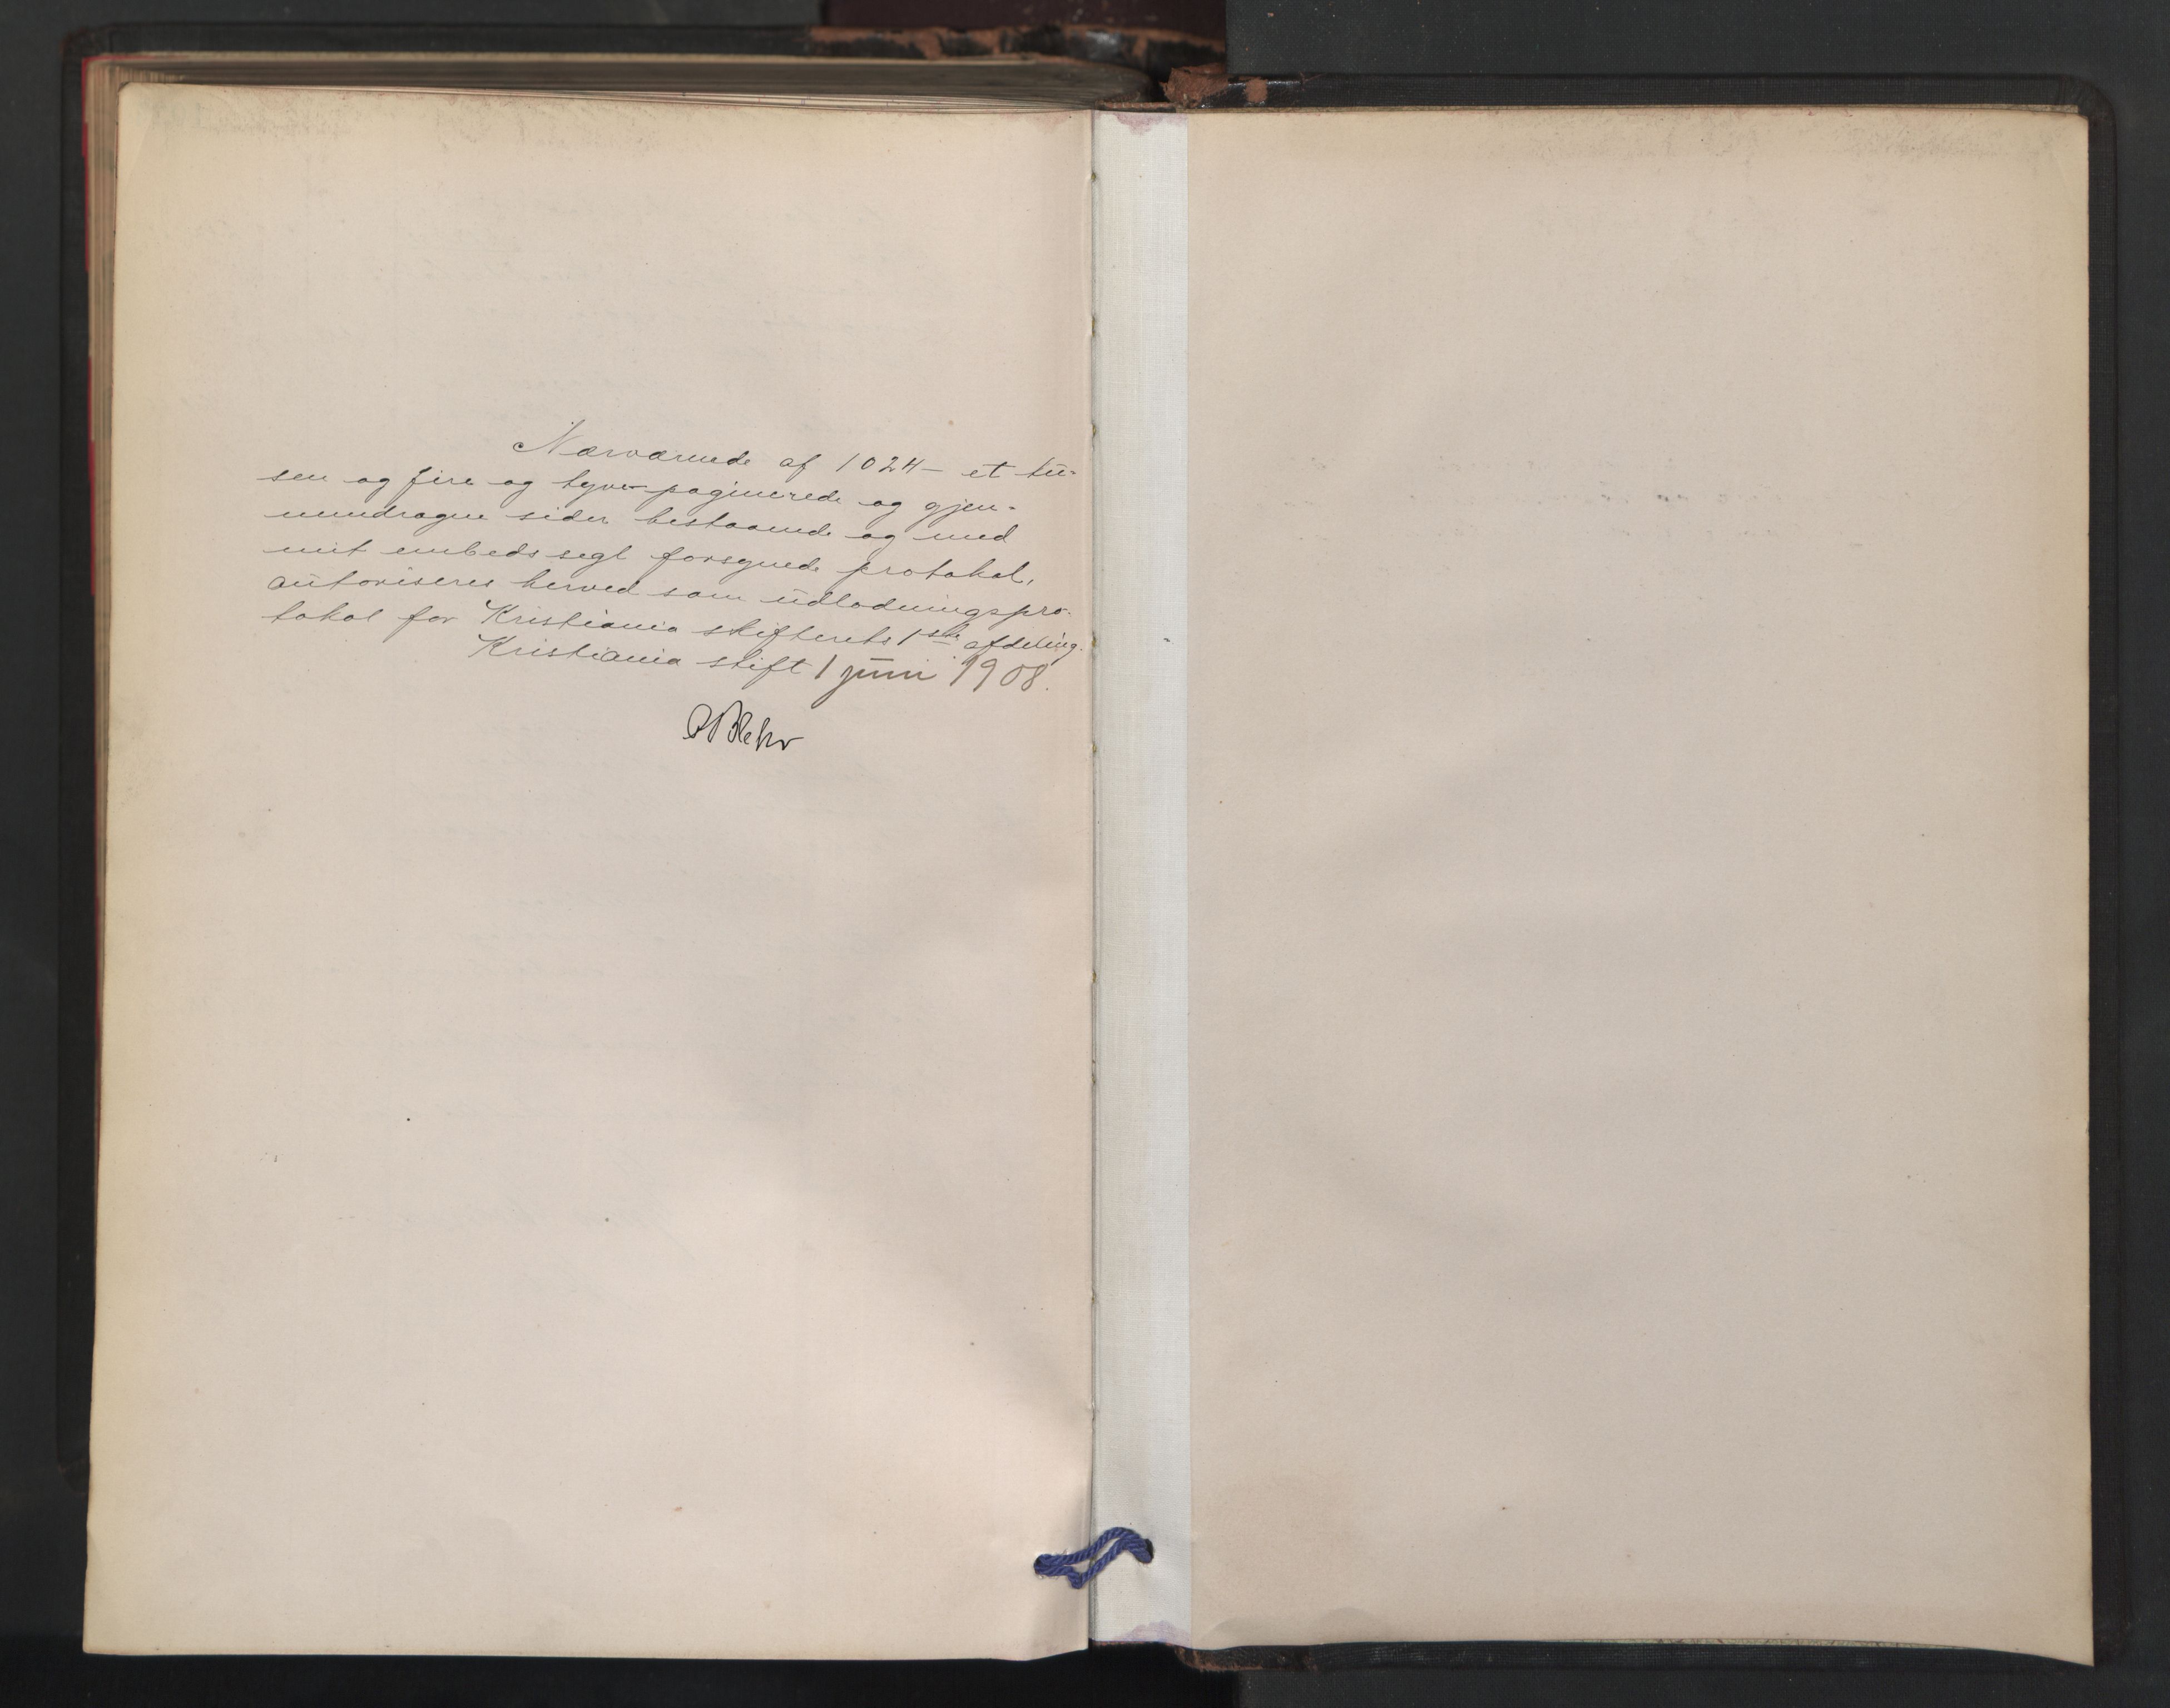 Nærværende af 1024 – et tu-
sen og fire og tyve – paginerede og gjen-
nemdragne sider bestaaende og med
mit embedssegl forsynede protokol,
autoriseres herved som udlodningspro-
tokol for Kristiania skifterets 1ste afdeling.
Kristiania stift 1 juni 1908.
O Blehr